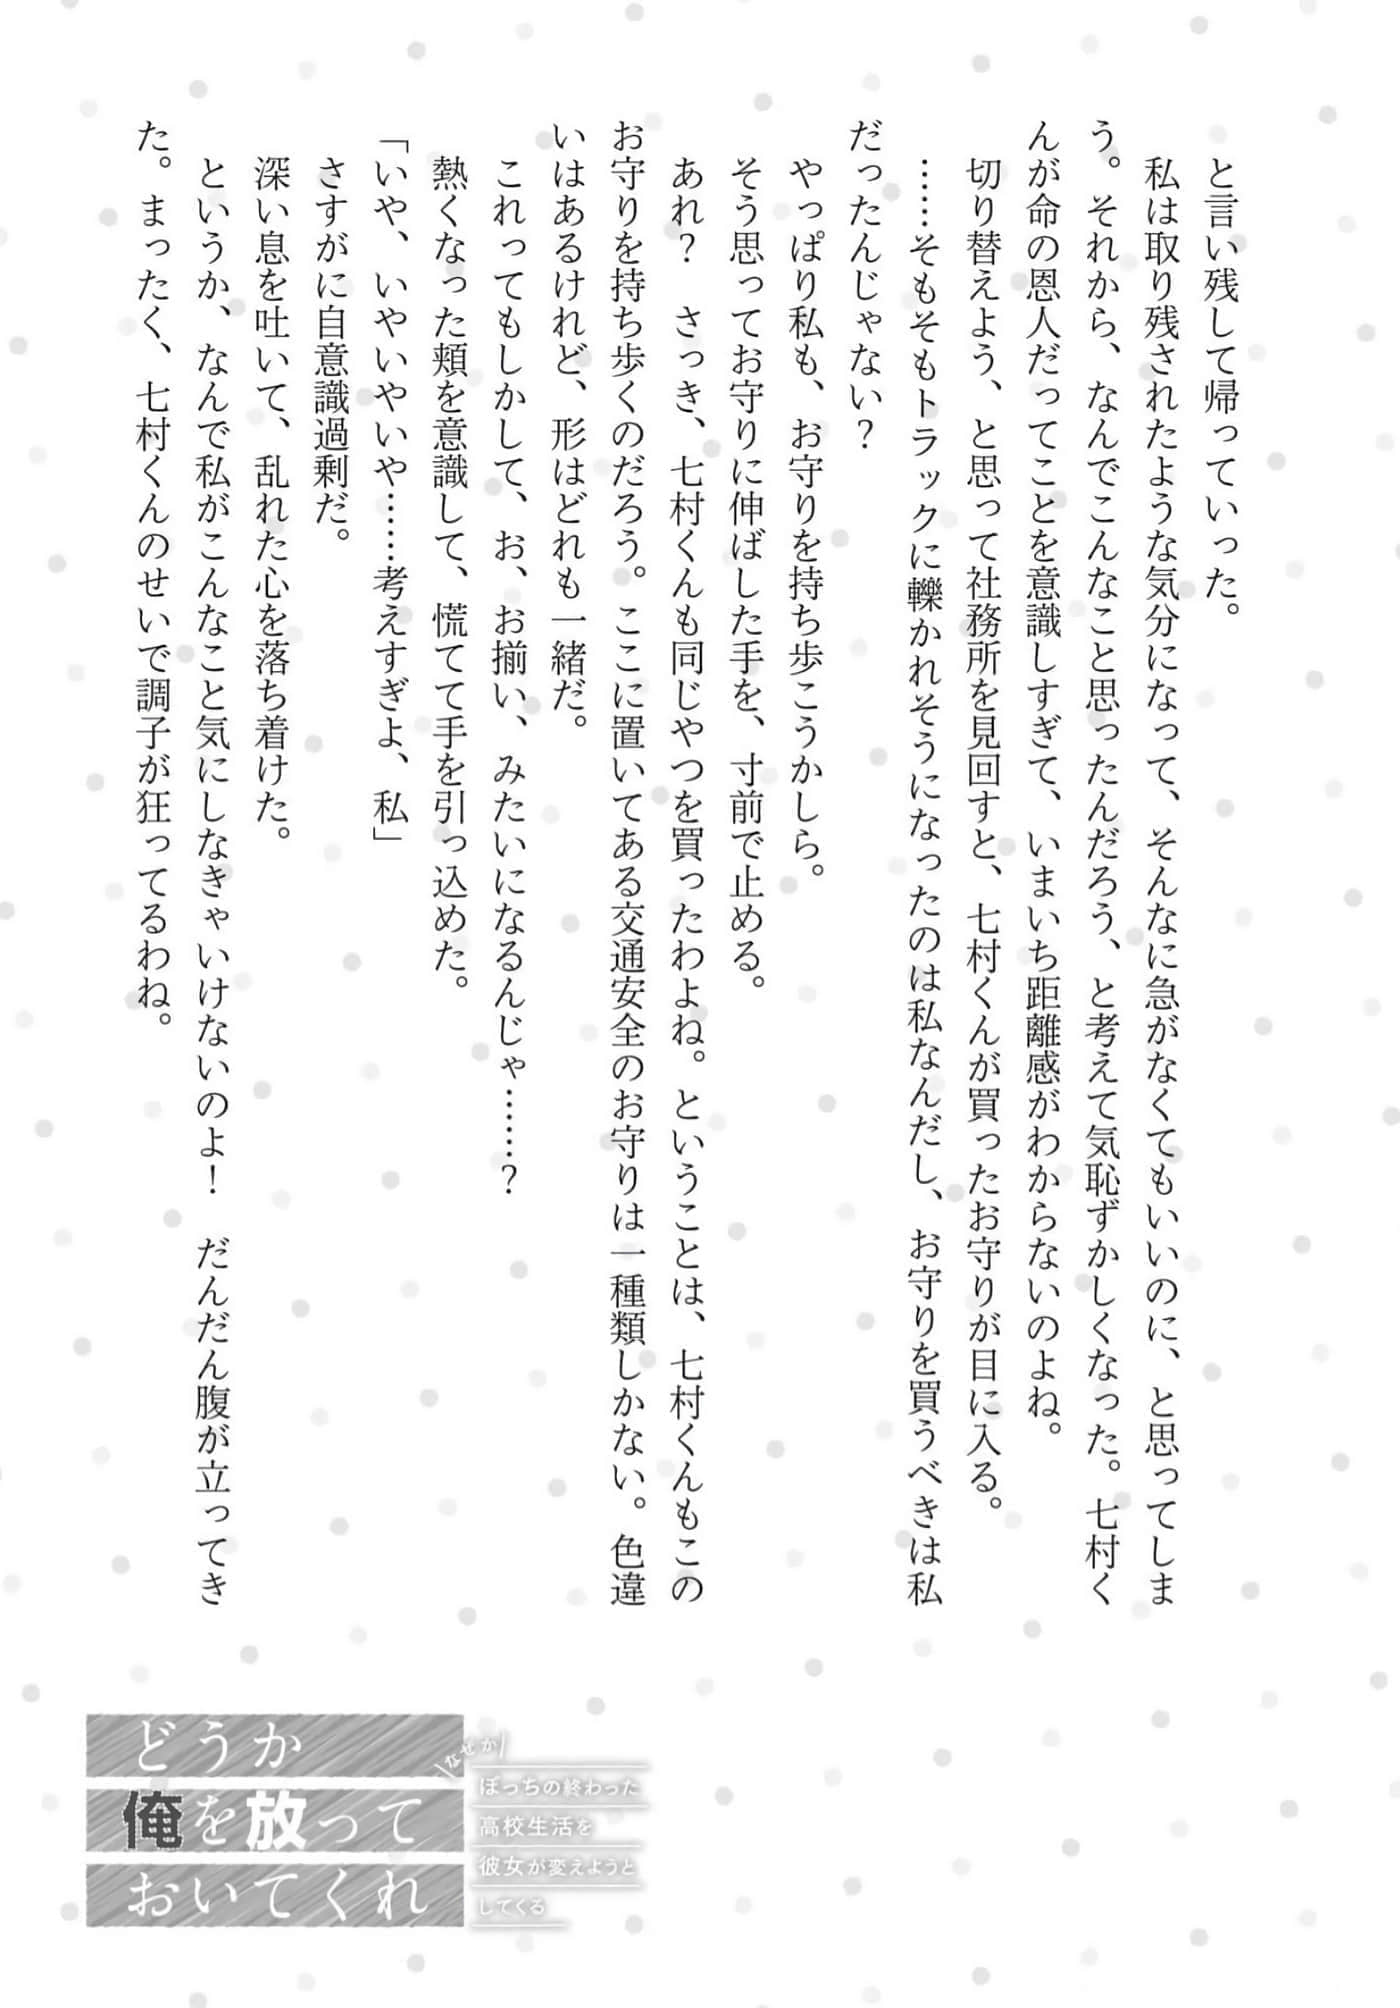 と言い残して帰っていった。
私は取り残されたような気分になって、そんなに急がなくてもいいのに、と思ってしま
う。それから、なんでこんなこと思ったんだろう、と考えて気恥ずかしくなった。七村く
んが命の恩人だってことを意識しすぎて、いまいち距離感がわからないのよね。
切り替えよう、と思って社務所を見回すと、七村くんが買ったお守りが目に入る。
……そもそもトラックに轢かれそうになったのは私なんだし、お守りを買うべきは私
だったんじゃない？
やっぱり私も、お守りを持ち歩こうかしら。
そう思ってお守りに伸ばした手を、寸前で止める。
あれ？　さっき、七村くんも同じやつを買ったわよね。ということは、七村くんもこの
お守りを持ち歩くのだろう。ここに置いてある交通安全のお守りは一種類しかない。色違
いはあるけれど、形はどれも一緒だ。
これってもしかして、お、お揃い、みたいになるんじゃ……？
熱くなった頬を意識して、慌てて手を引っ込めた。
「いや、いやいやいや……考えすぎよ、私」
さすがに自意識過剰だ。
深い息を吐いて、乱れた心を落ち着けた。
というか、なんで私がこんなこと気にしなきゃいけないのよ！　だんだん腹が立ってき
た。まったく、七村くんのせいで調子が狂ってるわね。
どうか
俺を放って
おいてくれ
なぜか
ぼっちの終わった
高校生活を
彼女が変えようと
してくる